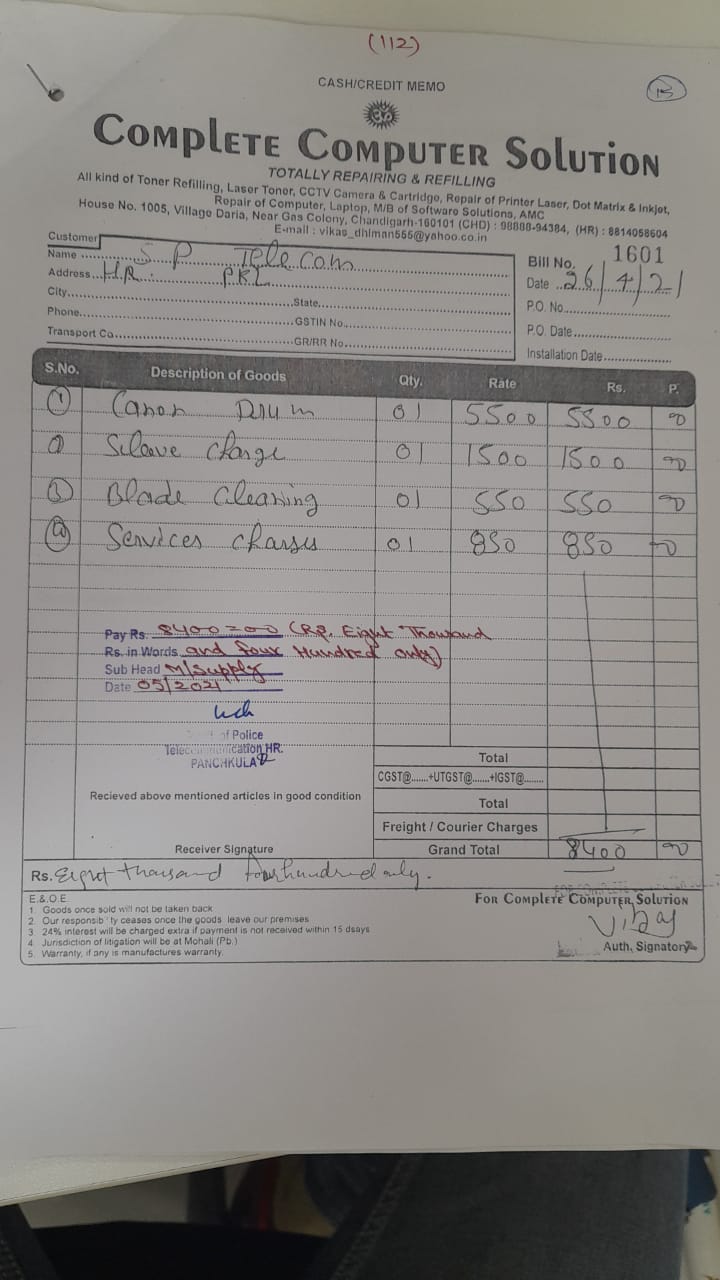 (112)
CASH/CREDIT MEMO
15
ॐ
COMPLETE COMPUTER SOLUTION
TOTALLY REPAIRING & REFILLING
All kind of Toner Refilling, Laser Toner, CCTV Camera & Cartridge, Repair of Printer Laser, Dot Matrix & Inkjet,
Repair of Computer, Laptop, M/B of Software Solutions, AMC
House No. 1005, Village Daria, Near Gas Colony, Chandigarh-160101 (CHD) : 98888-94384, (HR) : 8814058604
E-mail : vikas_dhiman555@yahoo.co.in
Customer
Name S P Telecom
Bill No. 1601
Address H.R. PKL
Date 26/4/21
City State
P.O. No.
Phone GSTIN No.
P.O. Date
Transport Co. GR/RR No.
Installation Date
S.No. Description of Goods Qty. Rate Rs. P.
1 Canon Drum 01 5500 5500 00
2 Sleave Charge 01 1500 1500 00
3 Blade Cleaning 01 550 550 00
4 Services charges 01 850 850 00
Pay Rs. 8400=00 (Rp. Eight Thousand
Rs. in Words and four Hundred only)
Sub Head M/Supply
Date 05/2021
of Police
Telecommunication HR.
PANCHKULA
Total
CGST@.......+UTGST@.......+IGST@........
Recieved above mentioned articles in good condition
Total
Freight / Courier Charges
Receiver Signature
Grand Total 8400 00
Rs. Eight thousand four hundred only.
E.&.O.E.
1. Goods once sold will not be taken back
2. Our responsibility ceases once the goods leave our premises
3. 24% interest will be charged extra if payment is not received within 15 dsays
4. Jurisdiction of litigation will be at Mohali (Pb.)
5. Warranty, if any is manufactures warranty.
FOR COMPLETE COMPUTER SOLUTION
Vijay
Auth. Signatory